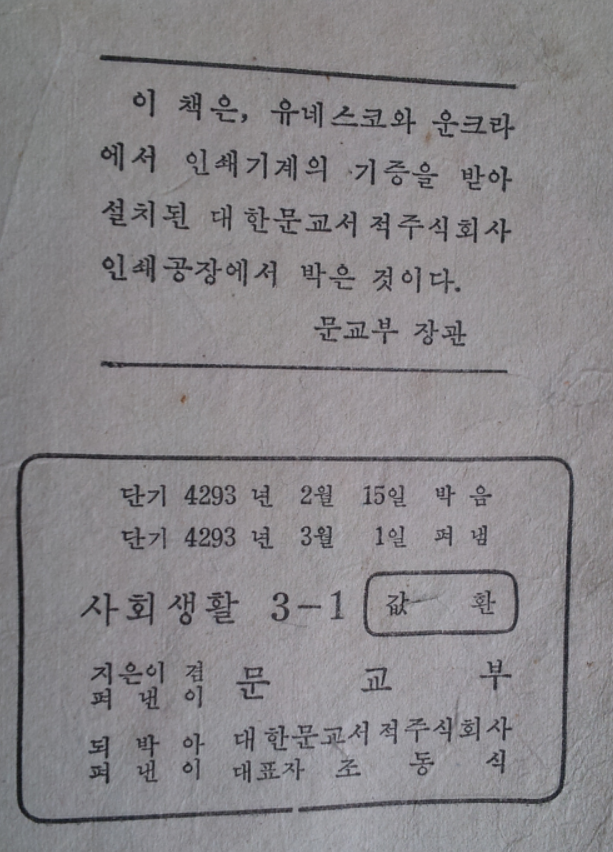 이 책은, 유네스코와 운크라
에서 인쇄기계의 기증을 받아
설치된 대한문교서적주식회사
인쇄공장에서 박은 것이다.
문교부 장관
단기 4293 년 2월 15일 박 음
단기 4293 년 3월 1일 펴 냄
사회생활 3-1 값 환
지은이 겸
펴 낸 이 문 교 부
되 박 아 대한문교서적주식회사
펴 낸 이 대표자 조 동 식